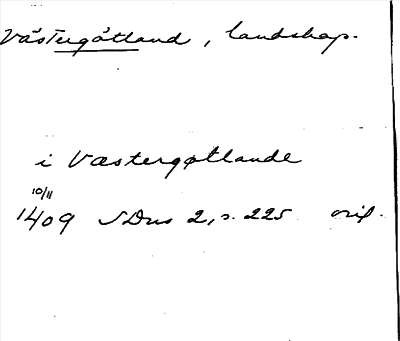 Västergötland, landskap.
i Væstergøtlande
10/11
1409 SDns 2, s. 225 orig.